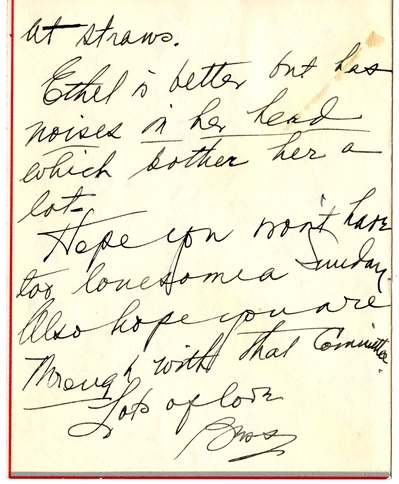 at straws.
Ethel is better but has
noises in her head
which bother her a
lot.
Hope you won't have
too lonesome a Sunday.
Also hope you are
through with that Committee.
Lots of love
Bess